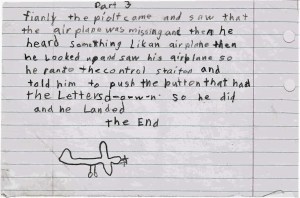 Part 3
fianly the piolt came and saw that
the airplane was missing and then he
heard something Likan airplane then
he Looked up and saw his airplane so
he ran to the control staiton and
told him to push the button that had
the Letters d-o-w-n. so he did
and he Landed
the End